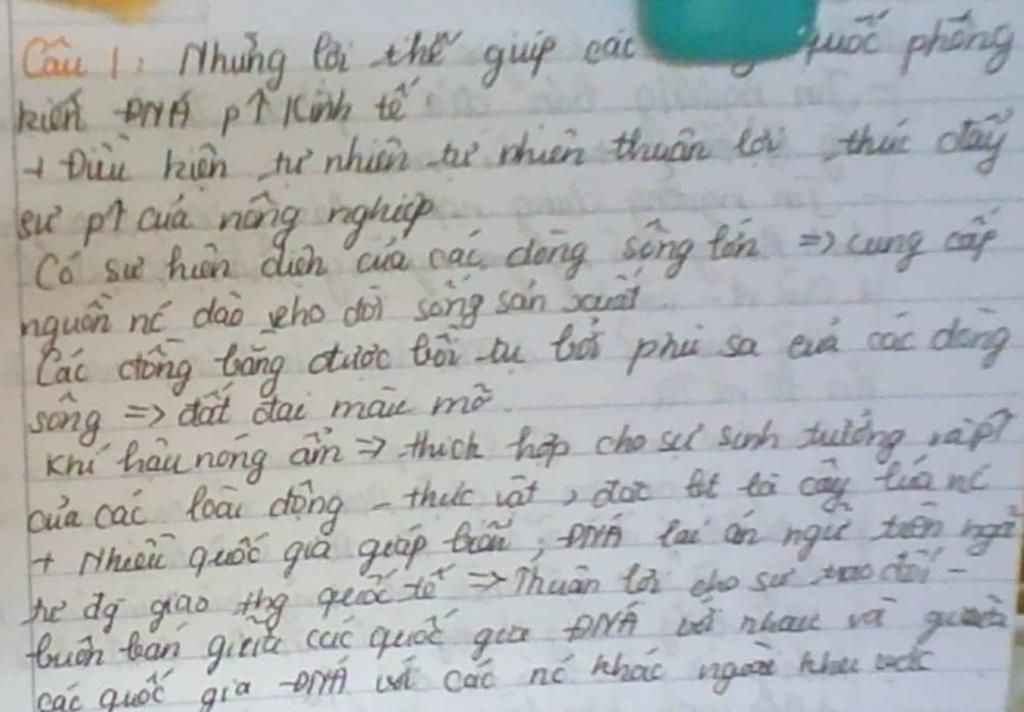 Câu 1: Những lợi thế giúp các quốc phong
kiến ĐNÁ p↑ kinh tế
+ Điều kiện tự nhiên tự nhiên thuận lợi thúc đẩy
sự p↑ của nông nghiệp
Có sự hiện diện của các dòng sông lớn => cung cấp
nguồn nc dào cho đời sống sản xuất.
Các đồng bằng được bồi tụ bởi phù sa của các dòng
sông => đất đai màu mỡ.
Khí hậu nóng ẩm => thích hợp cho sự sinh trưởng và p↑
của các loài động - thực vật, đặc bt là cây lúa nc
+ Nhiều quốc gia giáp biển, ĐNÁ lại án ngự trên ngã
tư đg giao thg quốc tế => Thuận lợi cho sự trao đổi -
buôn bán giữa các quốc gia ĐNÁ với nhau và giữa
các quốc gia ĐNÁ với các nc khác ngoài khu vực